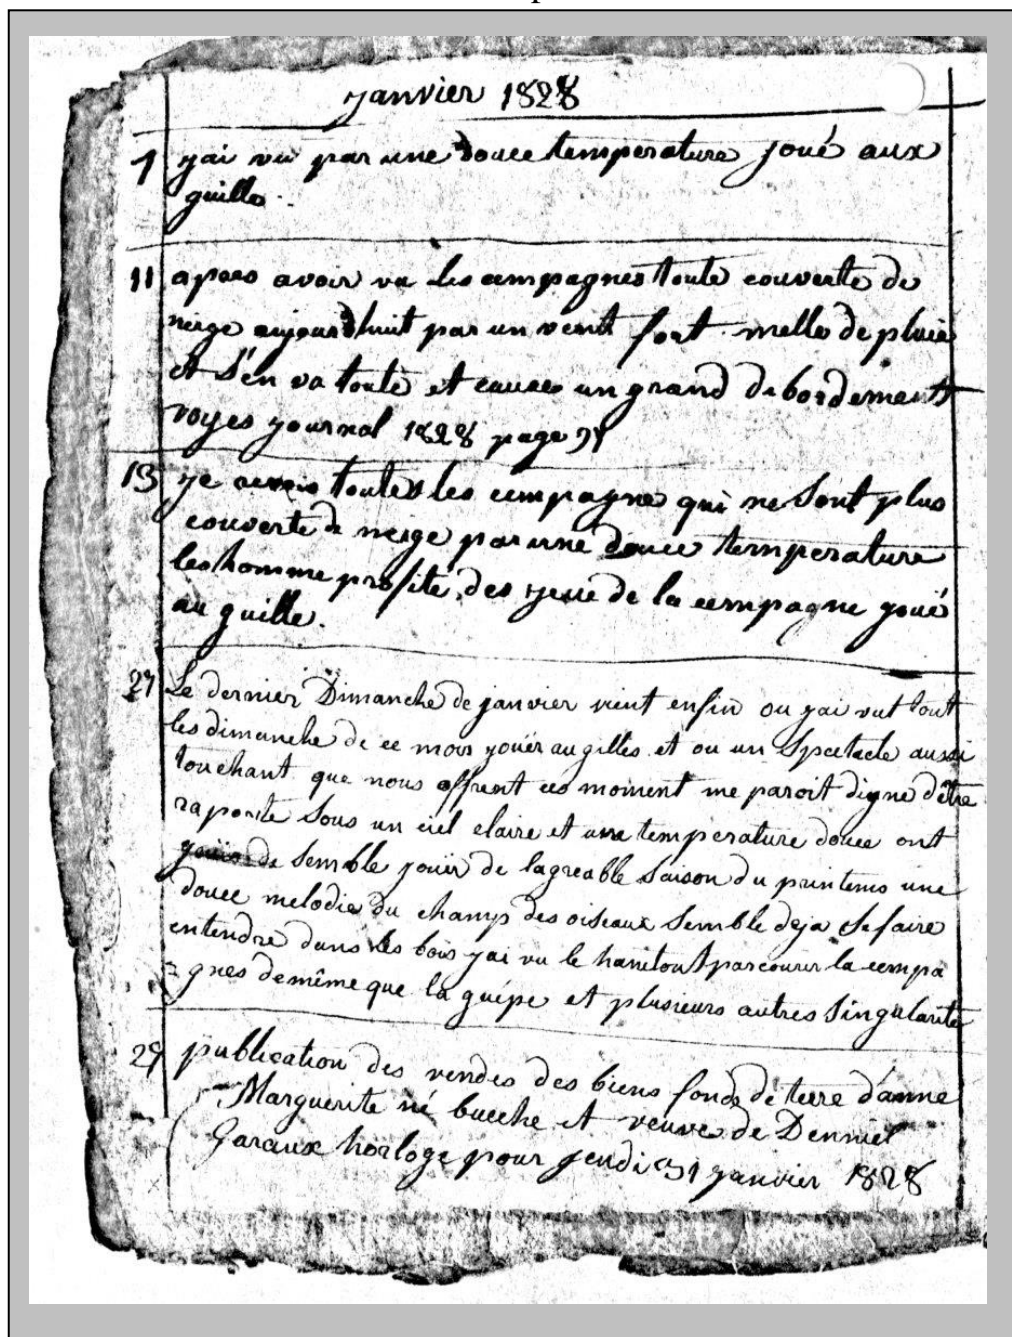 janvier 1828
1 jai vu par une douce temperature joué aux
guille
11 apres avoir vu les cempagnes toute couverte de
neige aujourdhuit par un vent fort melle de pluie
et s'en va toute et causes un grand debordement
voyes journal 1828 page
13 je toutes les cempagne qui ne sont plus
couverte de neige par une douce temperature
les homme profite des yeue de la cempagne joué
au guille.
27 Le dernier Dimanche de janvier vient enfin ou jai vut tout
les dimanche de ce mois joüér au gilles et ou un spectacle aussi
touchant que nous offrent ces moment me paroit digne d'être
raporte sous un ciel claire et une temperature douce ont
de semble joüir de lagreable saison du printems une
douce melodie du champ des oiseaux semble deja se faire
entendre dans les bois jai vu le hanetont parcourir la cempa
gnes de même que la guêpe et plusieurs autres singularité
29 publication des vendes des biens fonds de teere d'anne
Marguerite né bueche et veuve de Denniel
Garaux horloge pour jeudi 31 janvier 1828